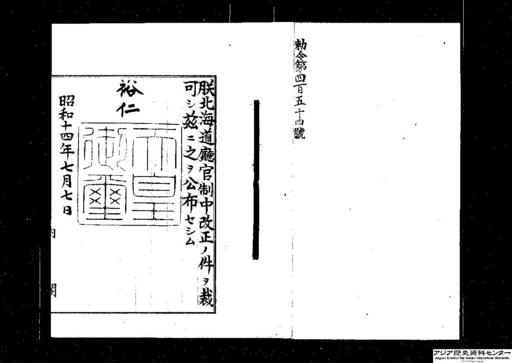 勅令第四百五十四號
朕北海道廳官制中改正ノ件ヲ裁
可シ茲ニ之ヲ公布セシム
裕仁
天皇
御璽
昭和十四年七月七日
内閣
アジア歴史資料センター
Japan Center for Asian Historical Records